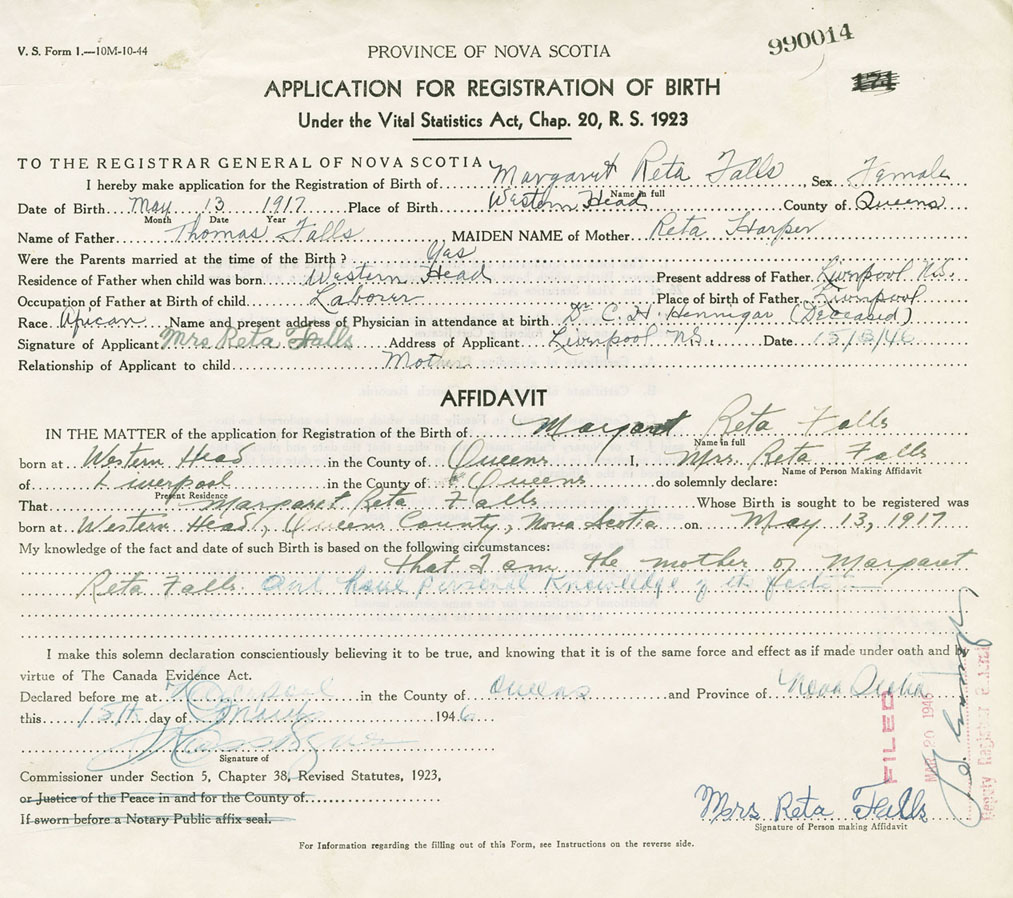 V. S. Form 1.—10M-10-44
PROVINCE OF NOVA SCOTIA
990014
171
APPLICATION FOR REGISTRATION OF BIRTH
Under the Vital Statistics Act, Chap. 20, R. S. 1923
TO THE REGISTRAR GENERAL OF NOVA SCOTIA
I hereby make application for the Registration of Birth of Margaret Reta Falls, Sex Female
Name in full
Date of Birth May 13 1917 Place of Birth Western Head County of Queens
Month Date Year
Name of Father Thomas Falls MAIDEN NAME of Mother Reta Harper
Were the Parents married at the time of the Birth? Yas
Residence of Father when child was born Western Head Present address of Father Liverpool N.S.
Occupation of Father at Birth of child Labourer Place of birth of Father Liverpool
Race African Name and present address of Physician in attendance at birth Dr C. H. Hennigar (Deceased)
Signature of Applicant Mrs Reta Falls Address of Applicant Liverpool N.S. Date 15/3/46
Relationship of Applicant to child Mother
AFFIDAVIT
IN THE MATTER of the application for Registration of the Birth of Margaret Reta Falls
Name in full
born at Western Head in the County of Queens I, Mrs. Reta Falls
Name of Person Making Affidavit
of Liverpool in the County of Queens do solemnly declare:
Present Residence
That Margaret Reta Falls Whose Birth is sought to be registered was
born at Western Head, Queens County, Nova Scotia on May 13, 1917
My knowledge of the fact and date of such Birth is based on the following circumstances:
that I am the mother of Margaret
Reta Falls and have personal knowledge of the facts
I make this solemn declaration conscientiously believing it to be true, and knowing that it is of the same force and effect as if made under oath and by
virtue of The Canada Evidence Act.
Declared before me at Liverpool in the County of Queens and Province of Nova Scotia
this 15th day of March 1946
Signature of
Commissioner under Section 5, Chapter 38, Revised Statutes, 1923,
or Justice of the Peace in and for the County of
If sworn before a Notary Public affix seal.
FILED
MAR 20 1946
Deputy Registrar General
Mrs Reta Falls
Signature of Person making Affidavit
For Information regarding the filling out of this Form, see Instructions on the reverse side.